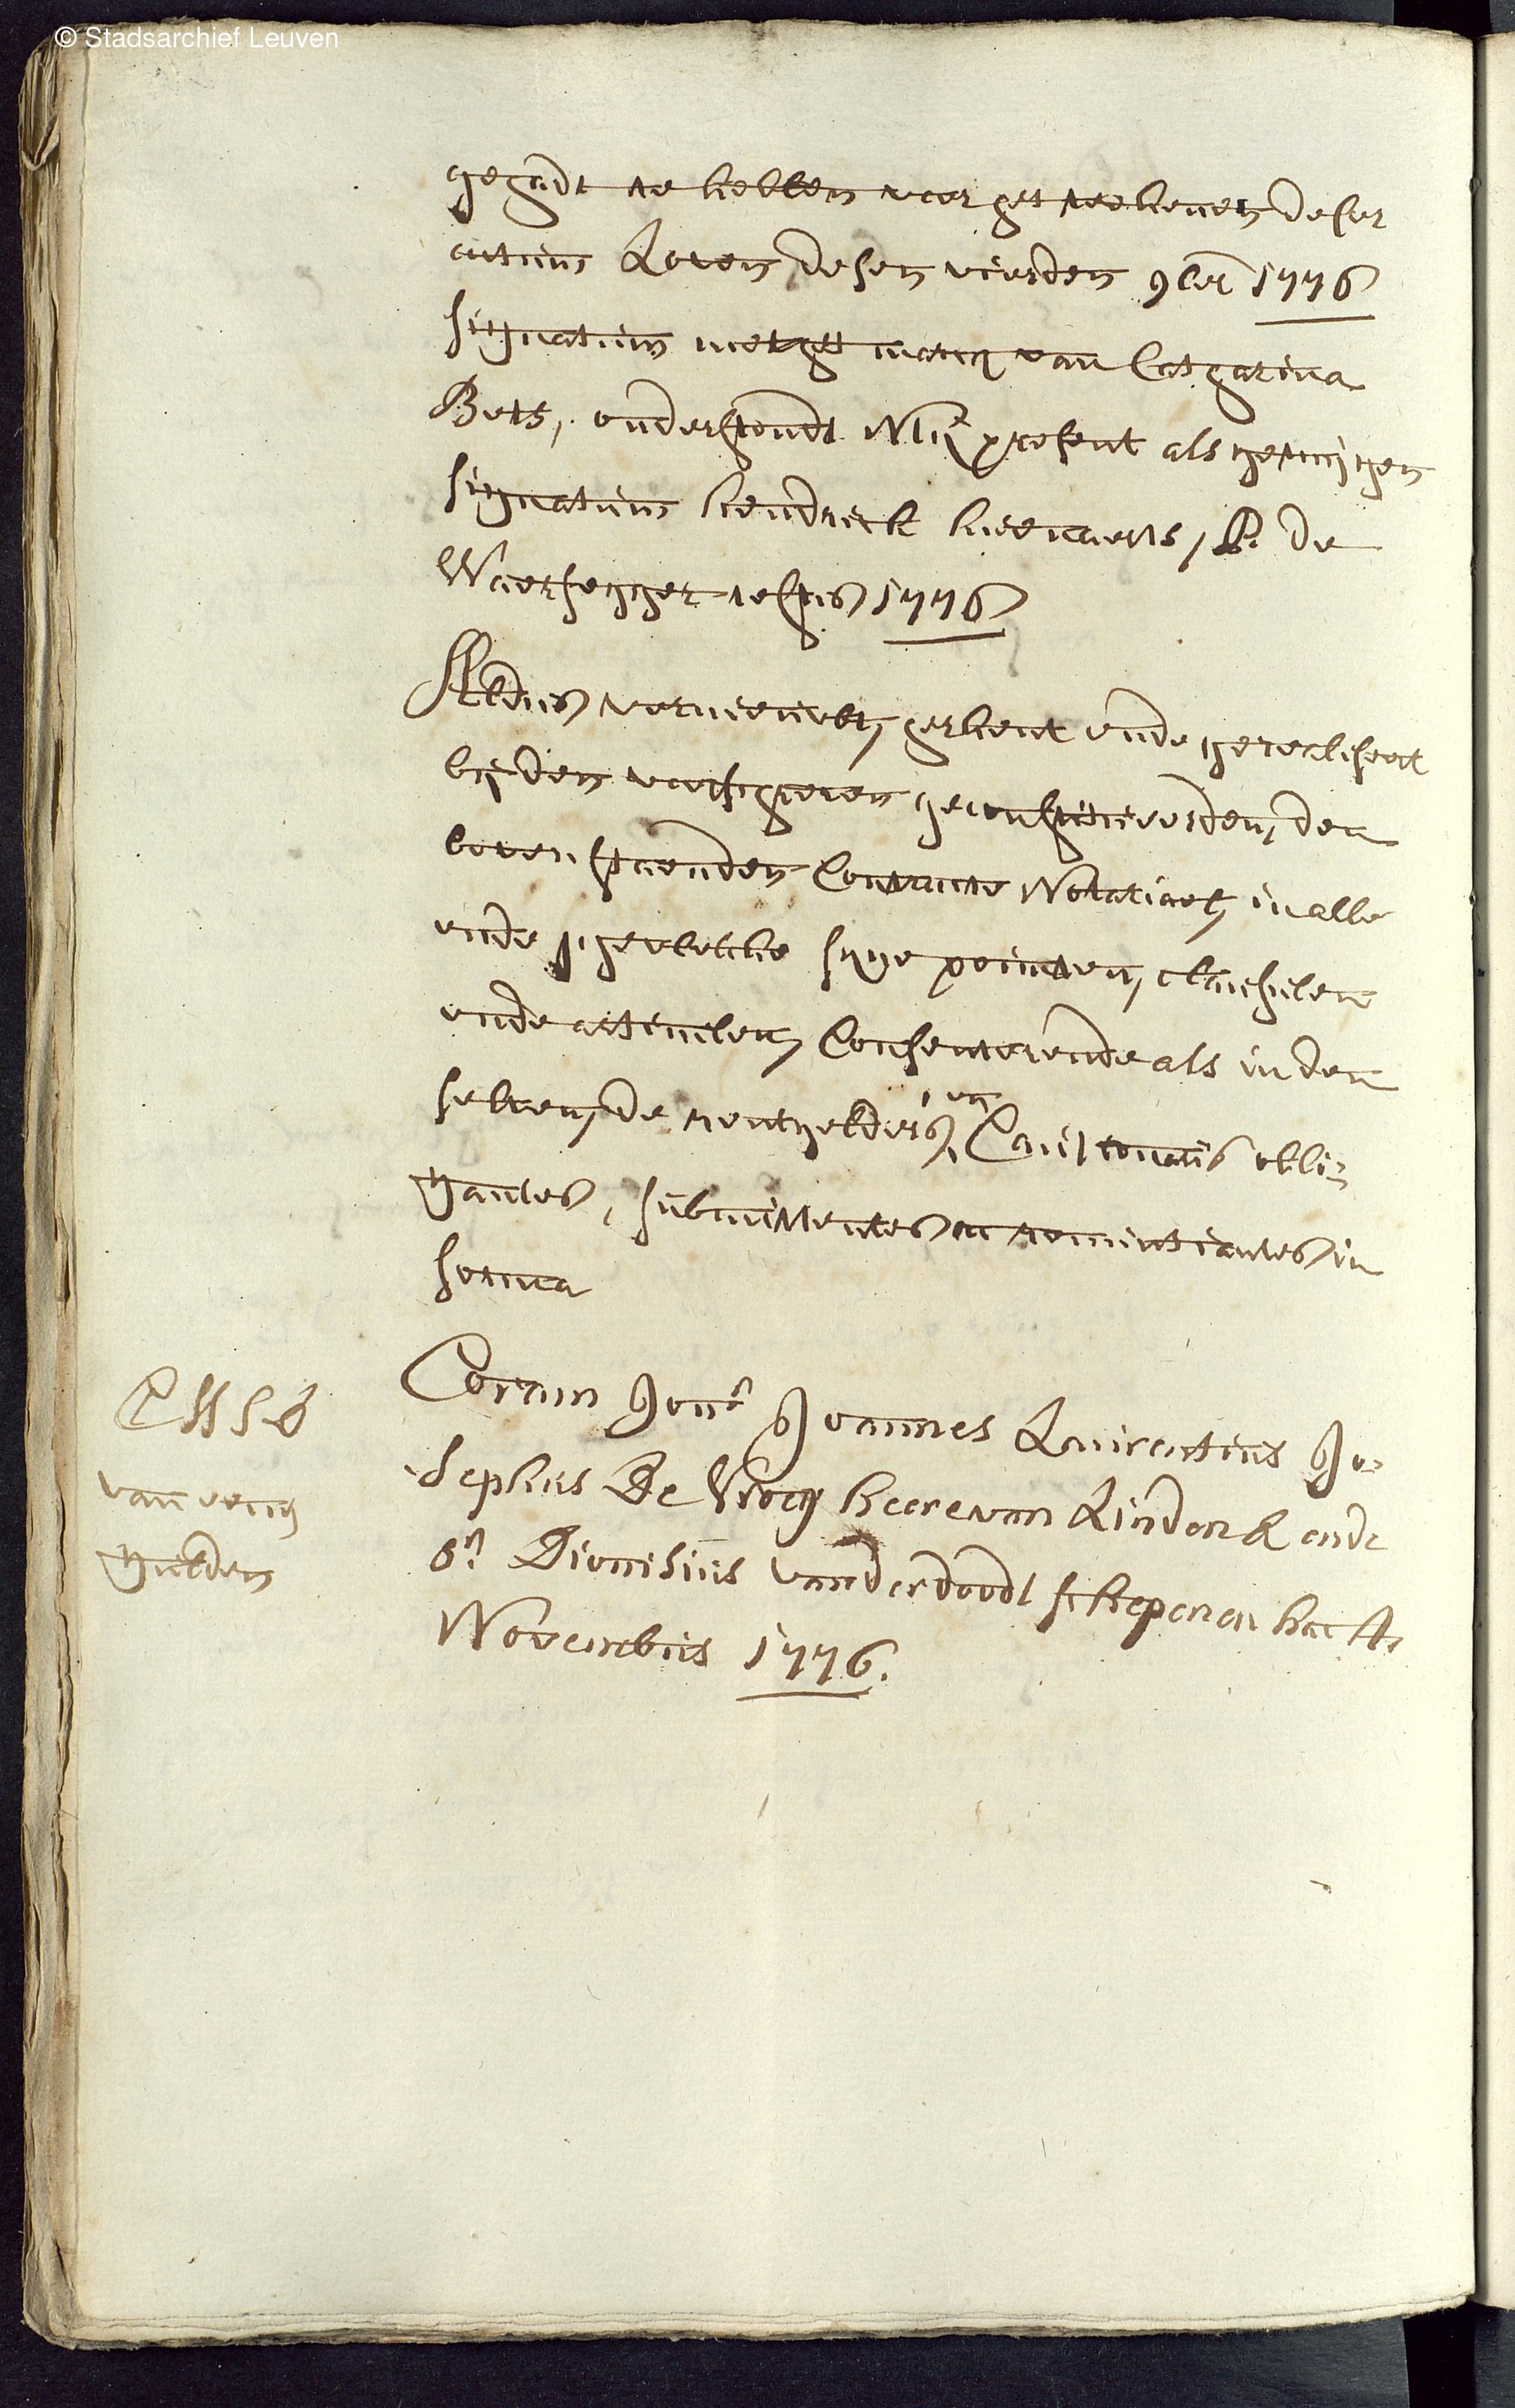 © Stadsarchief Leuven
gehadt te hebben voor het teekenen deser
actum Loven desen vierden 9ber 1776
signatum met het marcq van Catharina
Bets, onderstondt Mij present als getuijgen
signatum hendrick P. de
Waersegger testes 1776
Aldus vernieuwt, erkent ende gerealiseert
bij den voorschreven geconstitueerden, den
bovenstaenden Contracte Notariael, in alle
ende iegewelcke syne poincten, clausulen
ende articulen, Consenterende als in den
selven, de rentgelders, en Cautionaris obli-
gantes, submittentes ac renuntiantes in
forma
Coram Jonr Joannes Laurentius Jo-
sephus De Vroey heere van Linden & ende
Sr Dionisius vanderdoodt schepenen hac
Novembris 1776.
van
gulden